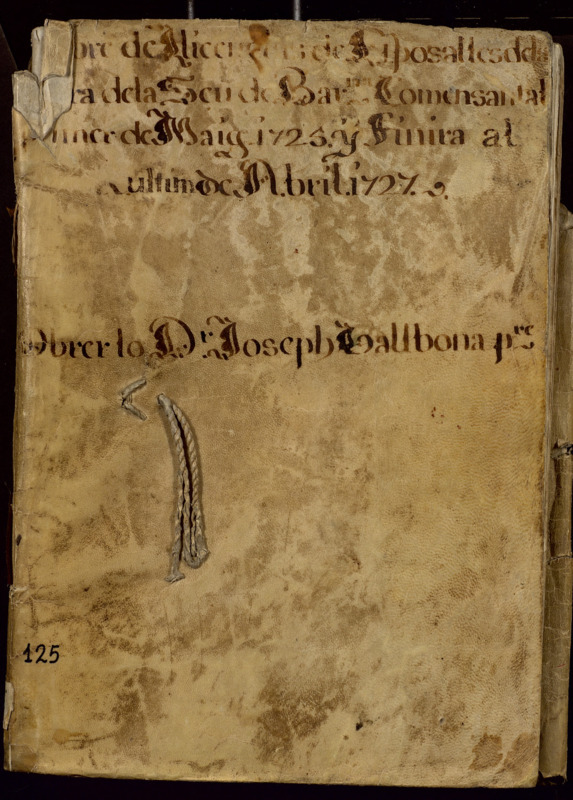 bre de Llicencias de Esposalles dela
ra dela Seu de Bar.na Comensant al
primer de Maig. 1725. y Finira al
ultim de Abril. 1727.
Obrer lo Dr. Joseph Vallbona pre
125